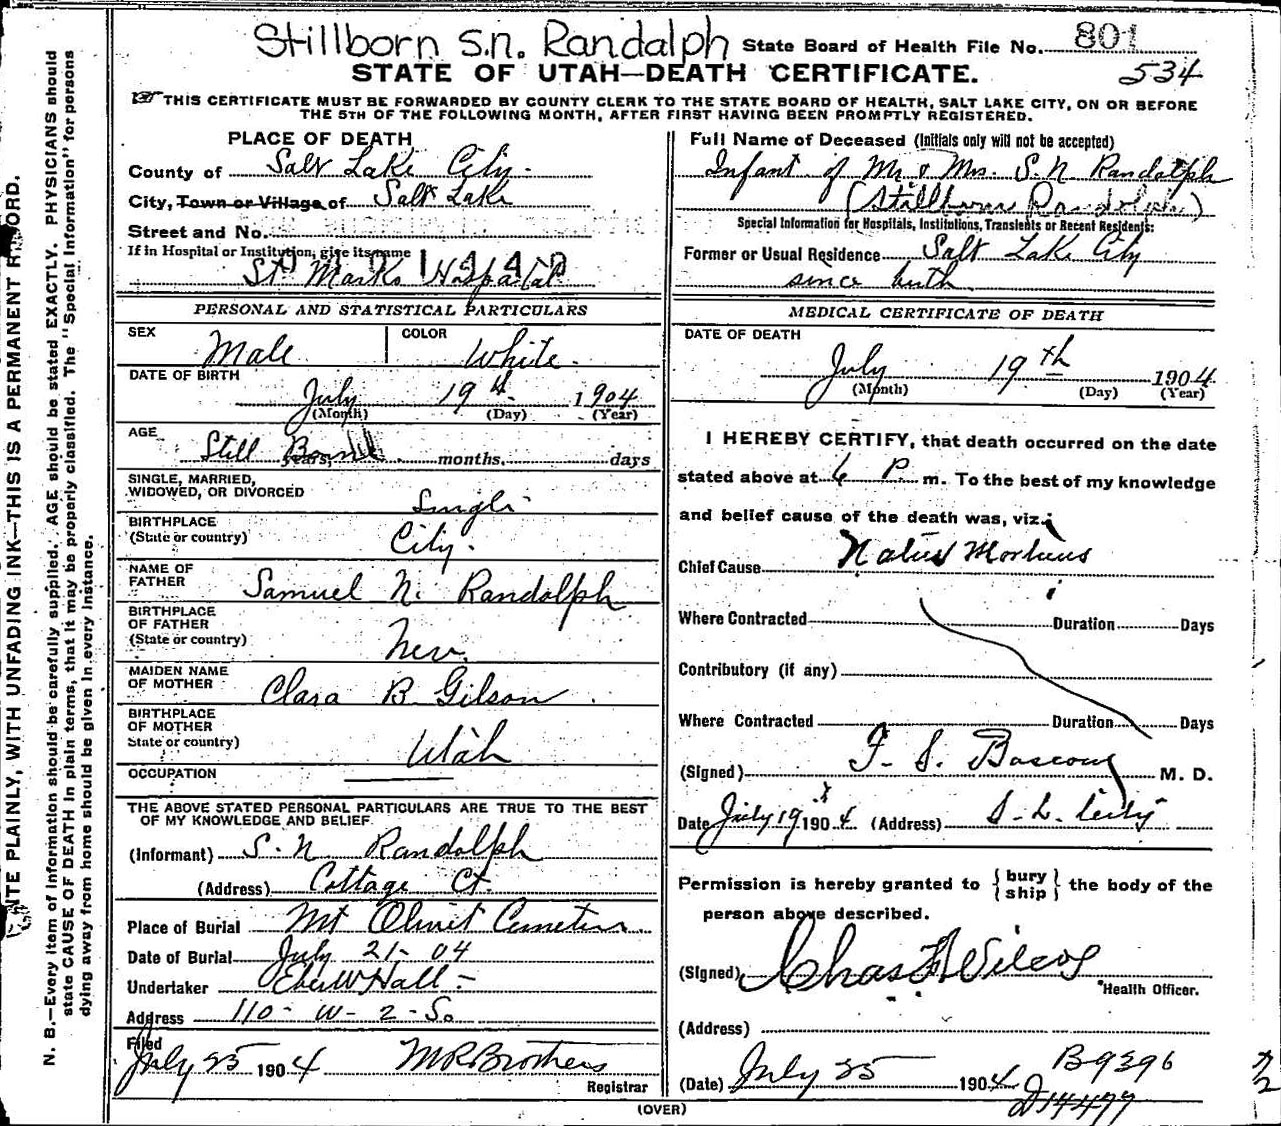 Stillborn S.N. Randalph State Board of Health File No. 801
534
STATE OF UTAH—DEATH CERTIFICATE.
THIS CERTIFICATE MUST BE FORWARDED BY COUNTY CLERK TO THE STATE BOARD OF HEALTH, SALT LAKE CITY, ON OR BEFORE
THE 5TH OF THE FOLLOWING MONTH, AFTER FIRST HAVING BEEN PROMPTLY REGISTERED.
PLACE OF DEATH
County of Salt Lake City.
City, Town or Village of Salt Lake
Street and No.
If in Hospital or Institution, give its name
St Marks Hospital
Full Name of Deceased (Initials only will not be accepted)
Infant of Mr. & Mrs. S. N. Randalph
(Stillborn Randolph)
Special Information for Hospitals, Institutions, Transients or Recent Residents:
Former or Usual Residence Salt Lake City
since birth
PERSONAL AND STATISTICAL PARTICULARS
SEX Male COLOR White.
DATE OF BIRTH
July 19th 1904
(Month) (Day) (Year)
AGE
Still Born years, months, days
SINGLE, MARRIED,
WIDOWED, OR DIVORCED Single
BIRTHPLACE
(State or country) City.
NAME OF
FATHER Samuel N. Randalph
BIRTHPLACE
OF FATHER
(State or country) Nev.
MAIDEN NAME
OF MOTHER Clara B. Gilson
BIRTHPLACE
OF MOTHER
State or country) Utah
OCCUPATION
THE ABOVE STATED PERSONAL PARTICULARS ARE TRUE TO THE BEST
OF MY KNOWLEDGE AND BELIEF.
(Informant) S. N Randalph
(Address) Cottage Ct.
Place of Burial Mt Olivet Cemetery
Date of Burial July 21- 04
Undertaker Eber W Hall -
Address 110- W- 2- So
Filed
July 25 1904 M R Brothers
Registrar
MEDICAL CERTIFICATE OF DEATH
DATE OF DEATH
July 19th 1904
(Month) (Day) (Year)
I HEREBY CERTIFY, that death occurred on the date
stated above at 6 P. m. To the best of my knowledge
and belief cause of the death was, viz.:
Chief Cause Natus Mortuus
Where Contracted Duration Days
Contributory (if any)
Where Contracted Duration Days
(Signed) F. S. Bascom M. D.
Date July 19 1904 (Address) S. L. City
Permission is hereby granted to { bury ship } the body of the
person above described.
(Signed) Chas F Wilcox
Health Officer.
(Address)
(Date) July 25 1904
B9396
D14477
(OVER)
WRITE PLAINLY, WITH UNFADING INK—THIS IS A PERMANENT RECORD.
N. B.—Every item of information should be carefully supplied. AGE should be stated EXACTLY. PHYSICIANS should
state CAUSE OF DEATH in plain terms, that it may be properly classified. The "Special Information" for persons
dying away from home should be given in every instance.